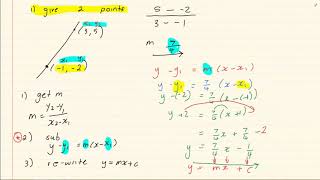 1) give 2 points
x₂ y₂
(3, 5)
x₁ y₁
(-1, -2)
1) get m
m = y₂-y₁
x₂-x₁
2) sub
y-y₁ = m(x-x₁)
3) re-write y = mx+c
5 - -2
3 - -1
m 7/4
y - y₁ = m (x - x₁)
y - y₁ = 7/4 (x - x₁)
y - (-2) = 7/4 (x - (-1))
y + 2 = 7/4 (x + 1)
= 7/4 x + 7/4 - 2
y = 7/4 x - 1/4
y = mx + c